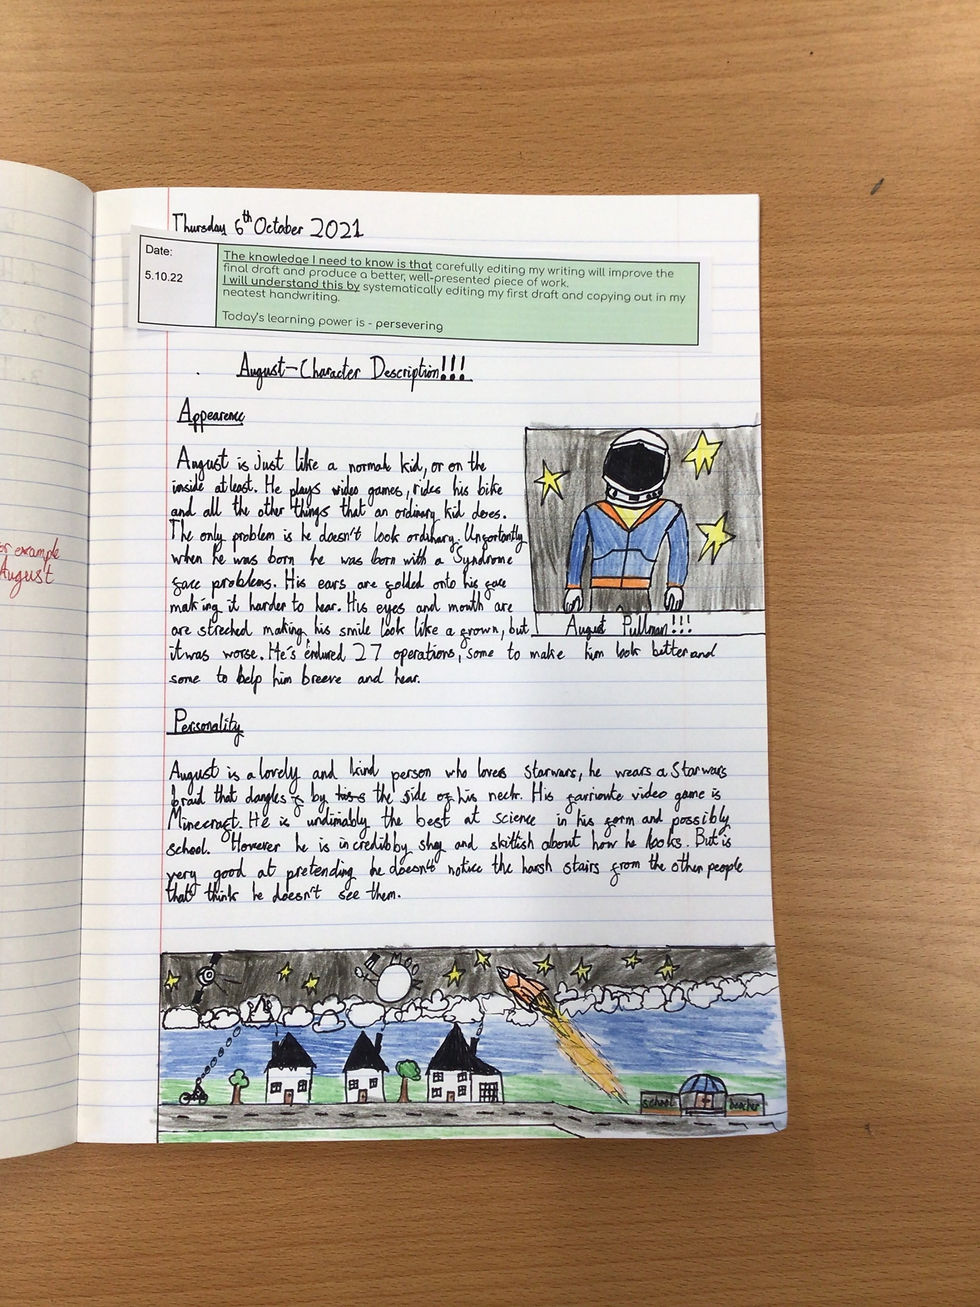 Thursday 6th October 2021
Date:
5.10.22
The knowledge I need to know is that carefully editing my writing will improve the
final draft and produce a better, well-presented piece of work.
I will understand this by systematically editing my first draft and copying out in my
neatest handwriting.
Today's learning power is - persevering
August-Character Description!!!
Appearence
August is just like a normal kid, or on the
inside atleast. He plays video games, rides his bike
and all the other things that an ordinary kid does.
The only problem is he doesn't look ordinary. Unfortantly
when he was born he was born with a Syndrome
face problems. His ears are folded onto his face
making it harder to hear. His eyes and mouth are
are streched making his smile look like a frown, but
it was worse. He's endured 27 operations, some to make him look better and
some to help him breeve and hear.
August Pullman!!!
Personality
August is a lovely and kind person who loves Starwars, he wears a Starwars
braid that dangles by the side of his neck. His favrioute video game is
Minecraft. He is undinibly the best at science in his form and possibly
school. However he is incredibly shy and skittish about how he looks. But is
very good at pretending he doesn't notice the harsh stairs from the other people
that think he doesn't see them.
school
beecher
or example
August